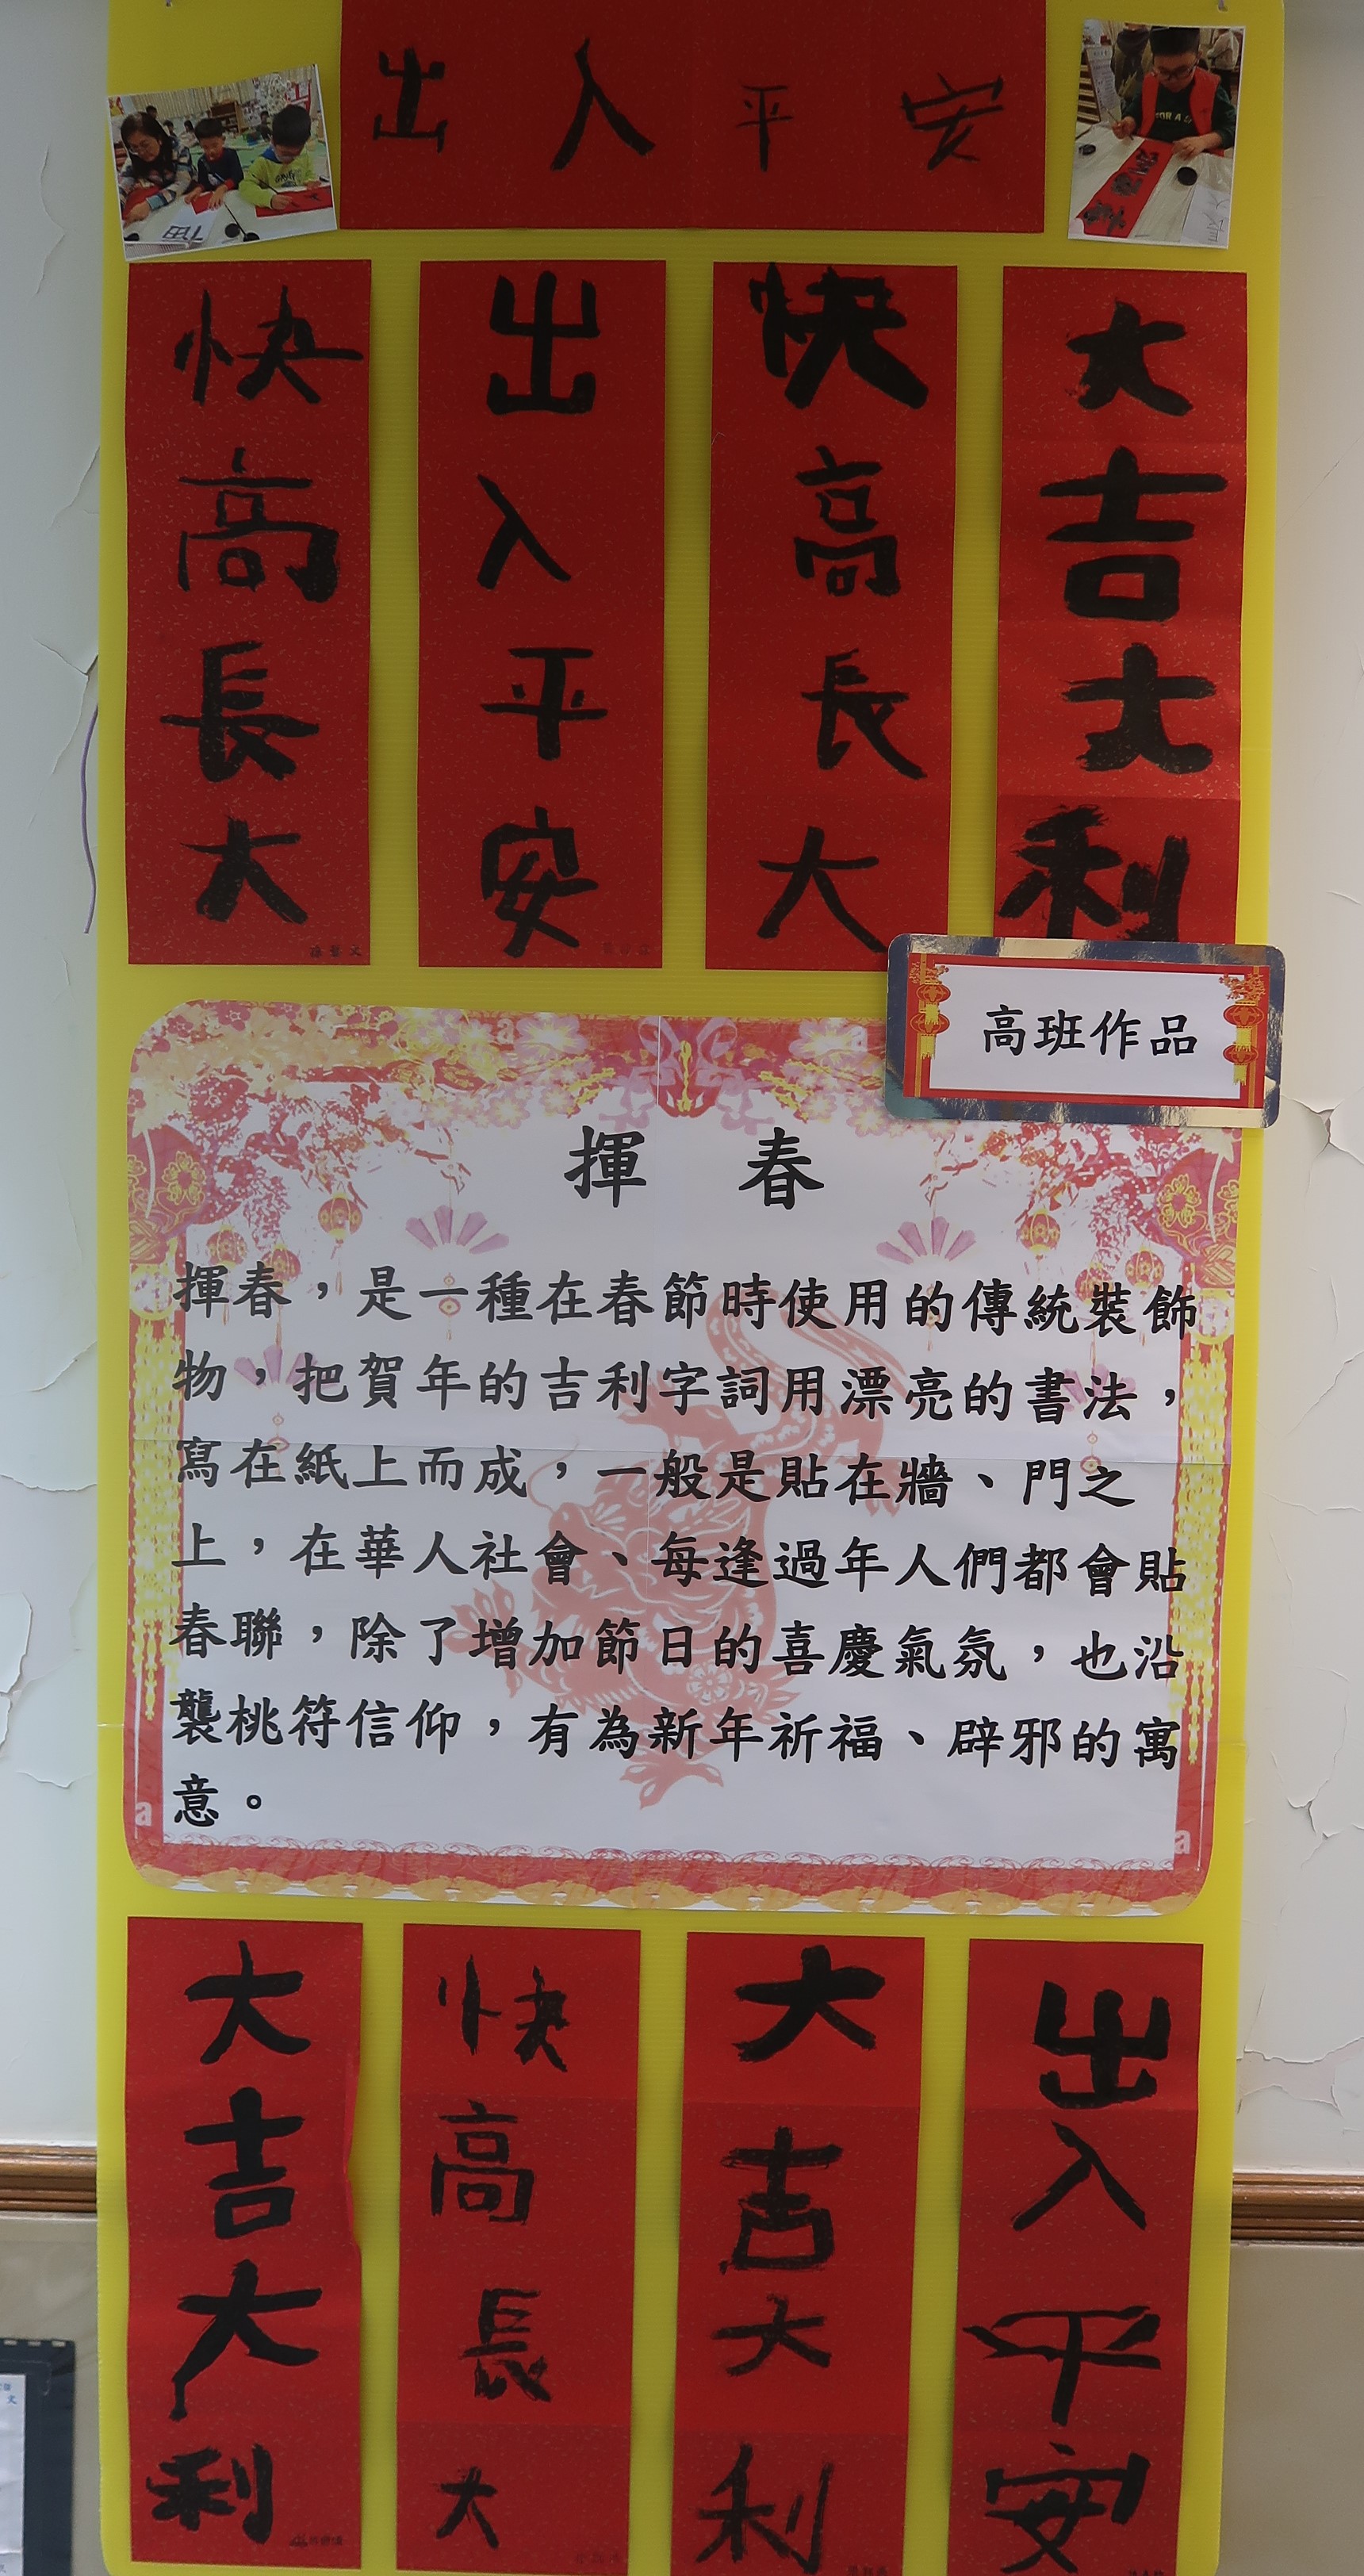 出入平安
快高長大
出入平安
快高長大
大吉大利
高班作品
揮 春
揮春，是一種在春節時使用的傳統裝飾
物，把賀年的吉利字詞用漂亮的書法，
寫在紙上而成，一般是貼在牆、門之
上，在華人社會、每逢過年人們都會貼
春聯，除了增加節日的喜慶氣氛，也沿
襲桃符信仰，有為新年祈福、辟邪的寓
意。
大吉大利
快高長大
大吉大利
出入平安